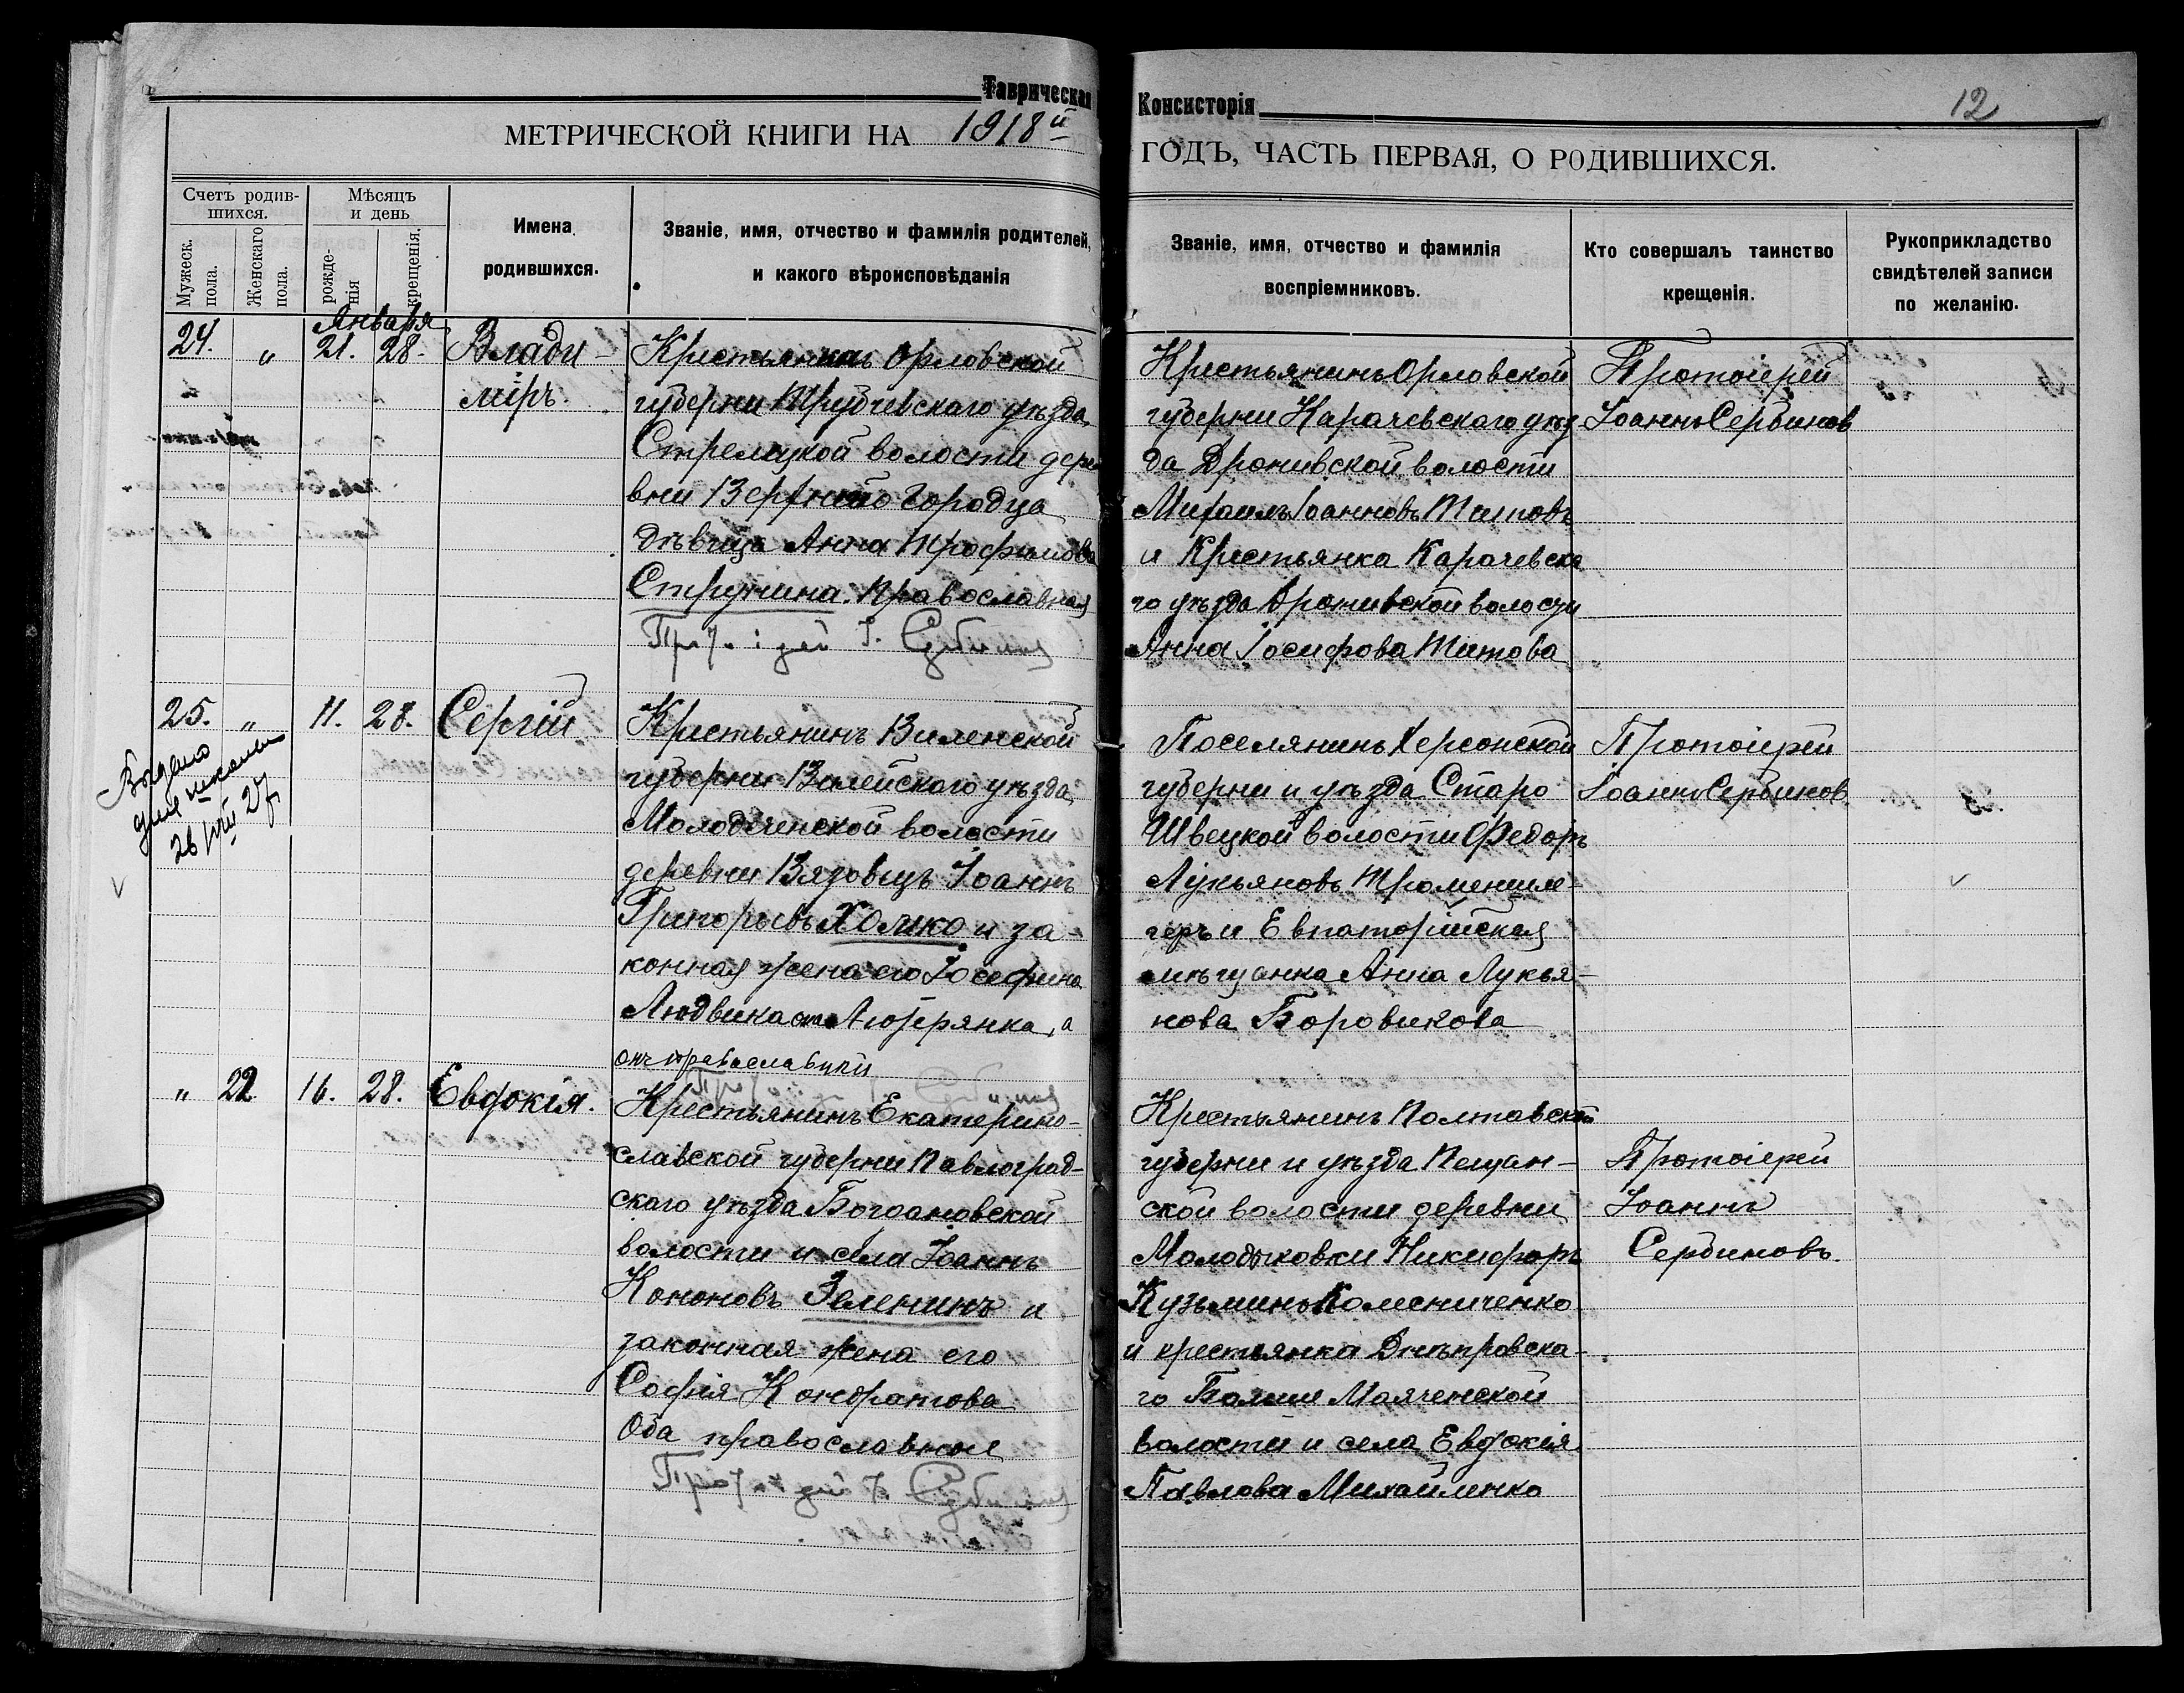 Таврическая Консисторія
12
МЕТРИЧЕСКОЙ КНИГИ НА 1918й ГОДЪ, ЧАСТЬ ПЕРВАЯ, О РОДИВШИХСЯ.
Счетъ родив-
шихся.
Мужеск.
пола.
Женскаго
пола.
Мѣсяцъ
и день
рожде-
нія
крещенія.
Имена
родившихся.
Званіе, имя, отчество и фамилія родителей,
и какого вѣроисповѣданія
Званіе, имя, отчество и фамилія
воспріемниковъ.
Кто совершалъ таинство
крещенія.
Рукоприкладство
свидѣтелей записи
по желанію.
Января
24. " 21. 28.
Влади-
міръ.
Крестьянинъ Орловской
губерни Трубчевскаго уѣзда
Стрелецкой волости дере
вни Верхняго Городца
дѣвица Анна Трофимова
Стружина. Православная
Протоіерей І. Сербинов
Крестьянинъ Орловской
губерни Карачевскаго уѣз
да Дроневской волости
Михаилъ Іоанновъ Титовъ
и Крестьянка Карачевска
го уѣзда Дроневской волости
Анна Іосифова Титова
Протоіерей
Іоаннъ Сербинов
25. " 11. 28.
Сергій
Выдано
для школы
26 г.
Крестьянинъ Виленской
губерни Вилейскаго уѣзда
Молодеченской волости
деревни Вязовецъ Іоаннъ
Григорьевъ Холяко и за-
конная жена его Іосефина
Людвика Лютерянка, а
онъ православный
Протоіерей І. Сербинов
Поселянинъ Херсонской
губерни и уѣзда Старо
Шведской волости Федоръ
Лукьяновъ Троменшле-
геръ и Евпаторійская
мѣщанка Анна Лукья-
нова Боровикова
Протоіерей
Іоаннъ Сербинов
" 22 16. 28.
Евдокія.
Крестьянинъ Екатерино-
славской губерни Павлоград-
скаго уѣзда Богдановской
волости и села Іоаннъ
Кононовъ Зеленинъ и
законная жена его
Софія Кондратова
Оба православные
Протоіерей І. Сербинов
Крестьянинъ Полтавской
губерни и уѣзда Пещан-
ской волости деревни
Молодыковки Никифоръ
Кузьминъ Колесниченко
и крестьянка Днѣпровска-
го Больше Маяченской
волости и села Евдокія
Павлова Михайленко
Протоіерей
Іоаннъ
Сербиновъ.